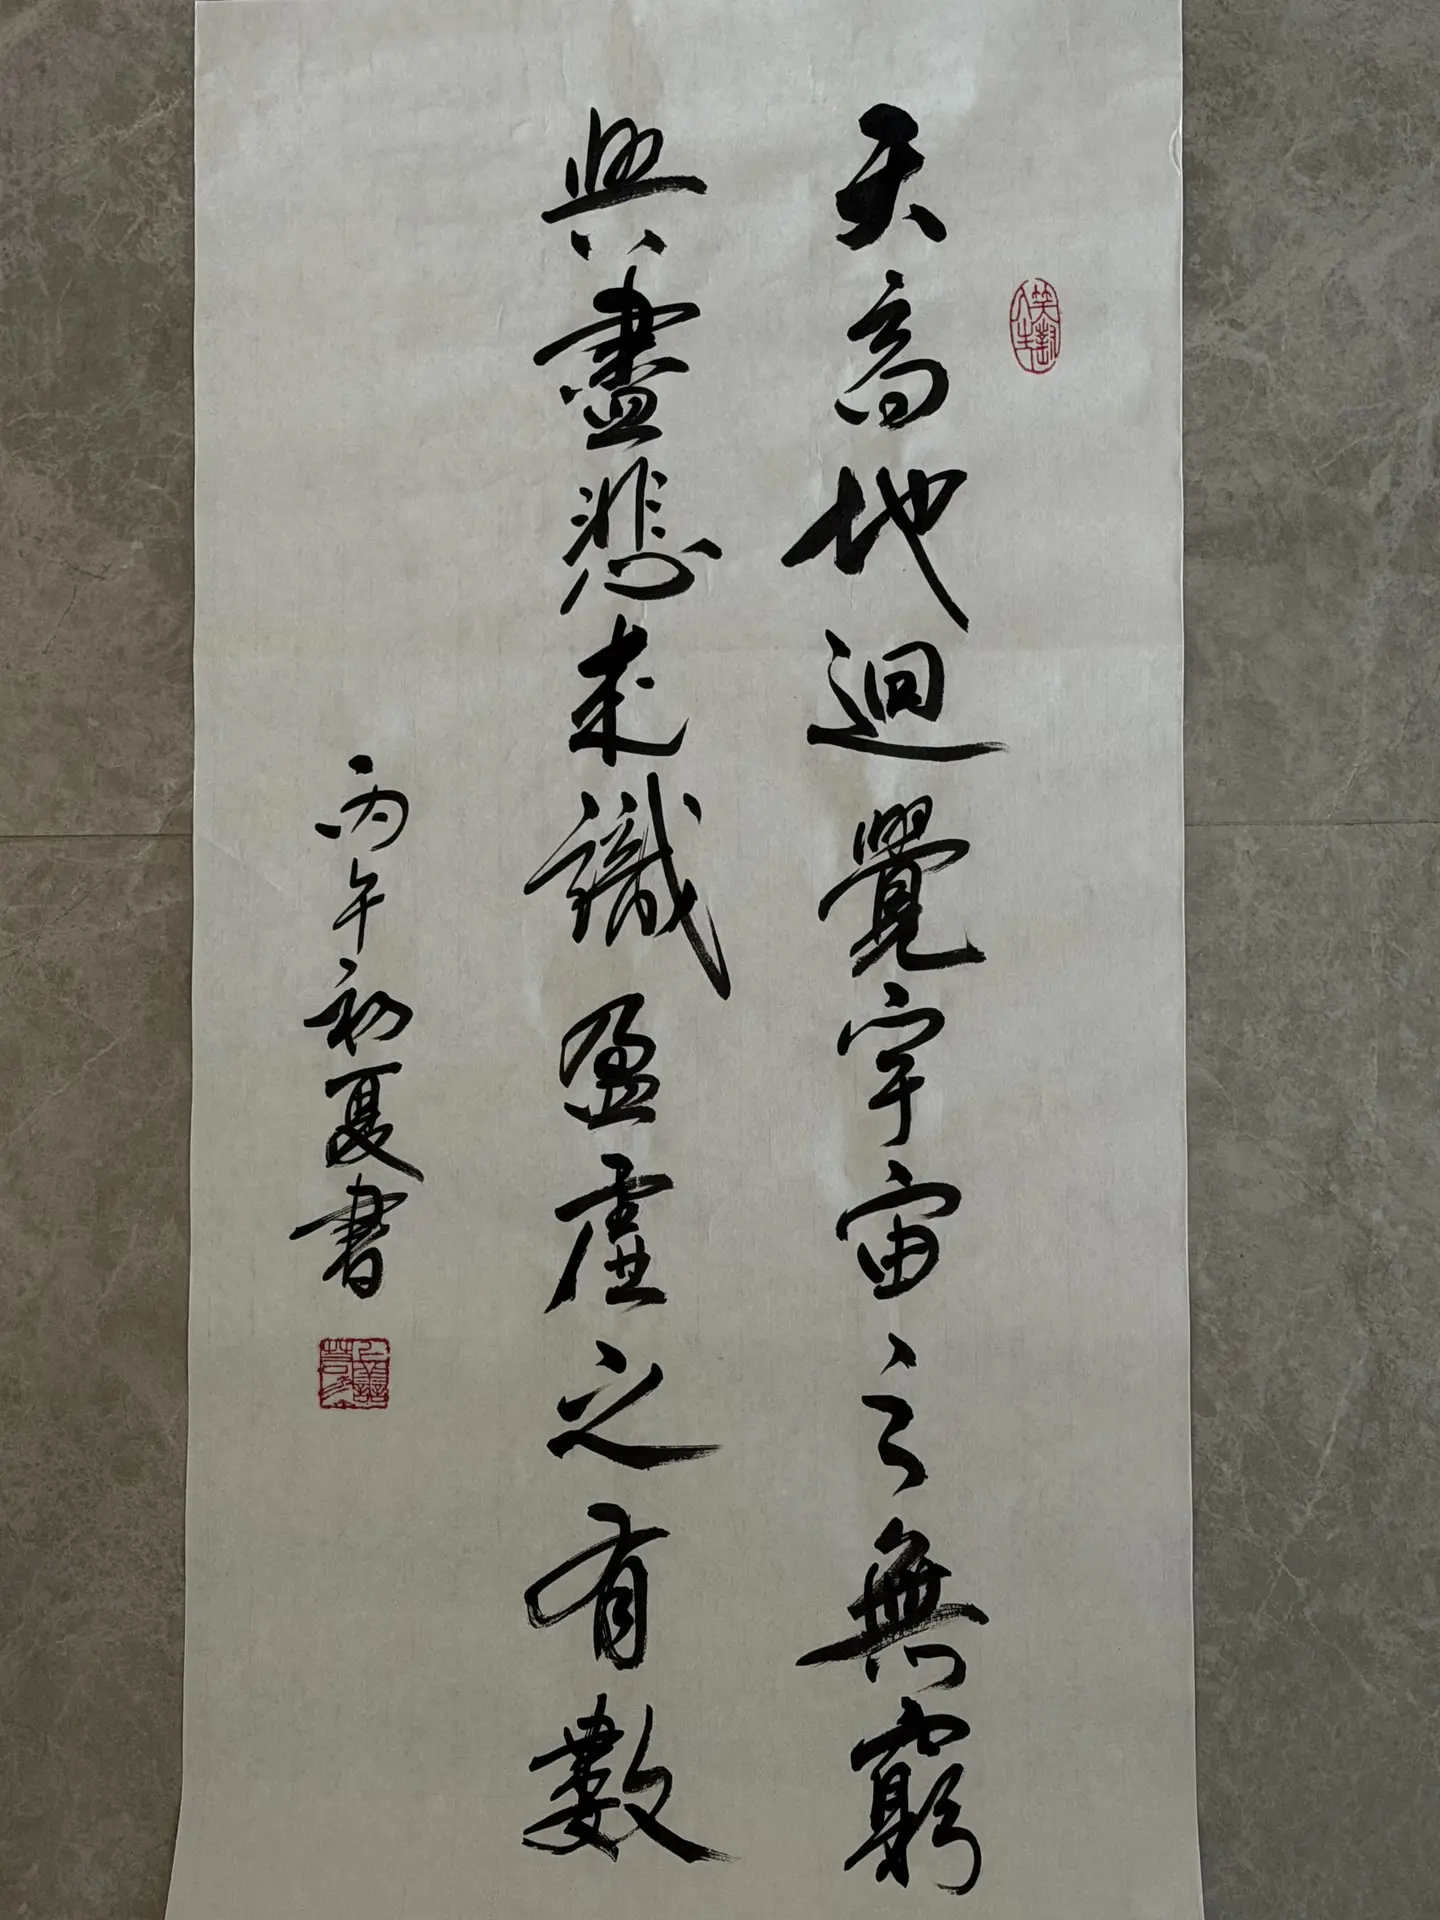 天高地迥覺宇宙之無窮
興盡悲來識盈虛之有數
丙午初夏書
笑對人生